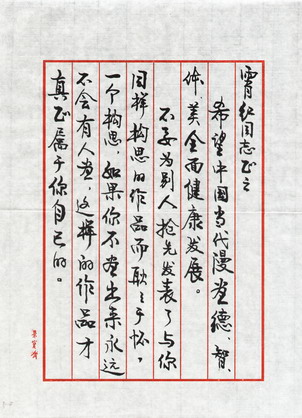 霄纪同志正之
希望中国当代漫画德、智、
体、美全面健康发展。
不要为别人抢先发表了与你
同样构思的作品而耿耿于怀，
一个构思，如果你不画出来永远
不会有人画，这样的作品才
真正属于你自己的。